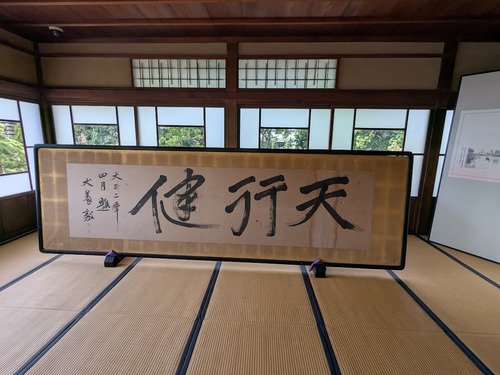 天行健
大正二年
四月
犬養毅